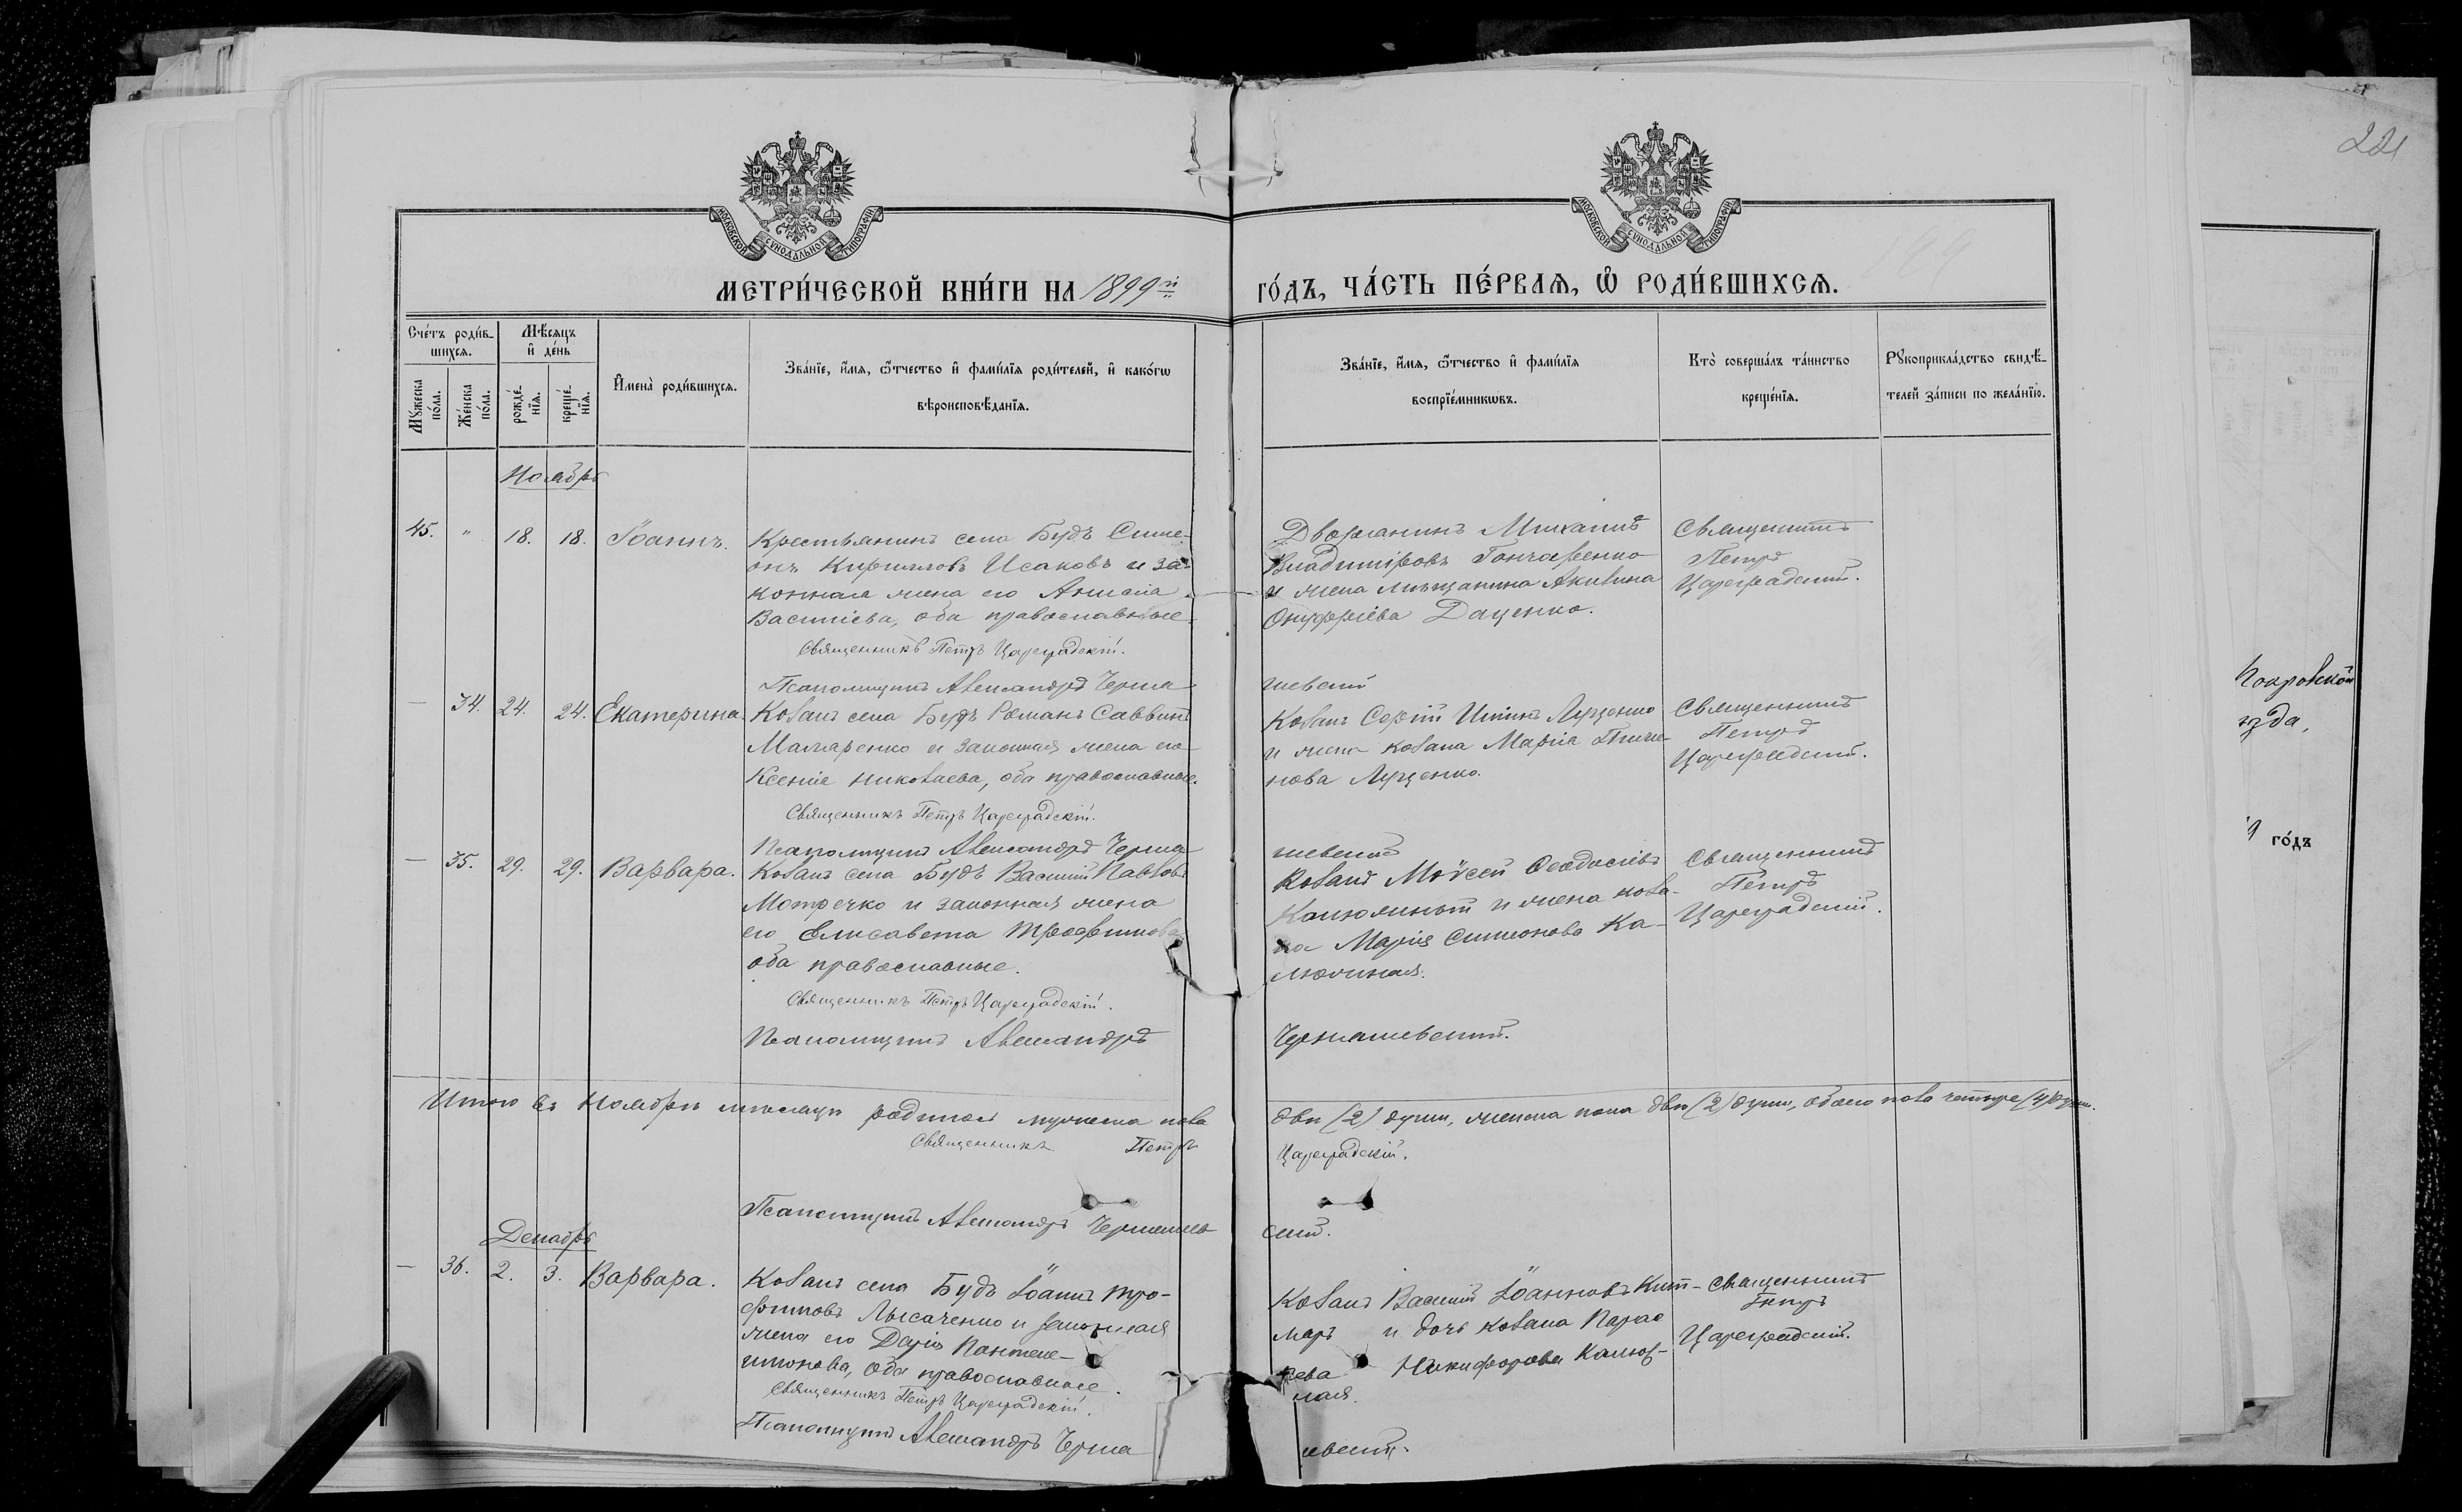 221
МОСКОВСКОЙ СѴНОДАЛЬНОЙ ТИПОГРАФІИ
МОСКОВСКОЙ СѴНОДАЛЬНОЙ ТИПОГРАФІИ
МЕТРИ́ЧЕСКОЙ КНИ́ГИ НА 1899й
ГО́ДЪ, ЧА́СТЬ ПЕ́РВАѦ, Ѡ҆ РОДИ́ВШИХСѦ.
Сче́тъ роди́в-
шихсѧ.
Мѣ́сѧцъ
и҆ де́нь
Мꙋ́жеска
по́ла.
Же́нска
по́ла.
рожде́-
нїѧ.
креще́-
нїѧ.
И҆мена̀ роди́вшихсѧ.
Зва́нїе, и҆́мѧ, ѻ҆́тчество и҆ фами́лїѧ роди́телей, и҆ како́гѡ
вѣроисповѣ́данїѧ.
Зва́нїе, и҆́мѧ, ѻ҆́тчество и҆ фами́лїѧ
воспрїе́мникѡвъ.
Кто̀ соверша́лъ та́инство
креще́нїѧ.
Рꙋкоприкла́дство свидѣ́-
телей за́писи по жела́нїю.
Ноябрь
45. " 18. 18. Іоаннъ. Крестьянинъ села Будъ Симе-
онъ Кирилловъ Исаковъ и за-
конная жена его Анисія
Василіева, оба православные.
Священникъ Петръ Цареградскій.
Псаломщикъ Александръ Черня
Дворянинъ Михаилъ
Владиміровъ Гончаренко
и жена мѣщанина Акилина
Онуфріева Даценко.
Священникъ
Петръ
Цареградскій.
шевскій
— 34. 24. 24. Екатерина. Козакъ села Будъ Романъ Саввинъ
Маляренко и законная жена его
Ксенія Николаева, оба православные.
Священникъ Петръ Цареградскій.
Псаломщикъ Александръ Черня
Козакъ Сергій Ильинъ Луценко
и жена козака Марія
нова Луценко.
Священникъ
Петръ
Цареградскій.
шевскій
— 35. 29. 29. Варвара. Козакъ села Будъ Василій Павловъ
Мотречко и законная жена
его Елисавета Трофимова
оба православные.
Священникъ Петръ Цареградскій.
Псаломщикъ Александръ
Козакъ Моѵсей Ѳеодосіевъ
Калюжный и жена коза-
ка Марія Симеонова Ка-
люжная.
Священникъ
Петръ
Цареградскій.
Чернышевскій.
Итого въ Ноябрѣ мѣсяцѣ родилось мужеска пола
двѣ (2) души, женска пола двѣ (2) души, обоего пола четыре (4) души.
Священникъ Петръ
Цареградскій.
Псаломщикъ Александръ Чернышев
скій.
Декабрь
— 36. 2. 3. Варвара. Козакъ села Будъ Іоаннъ Тро-
фимовъ Лысаченко и законная
жена его Дарія Пантеле-
имонова, оба православные.
Священникъ Петръ Цареградскій.
Псаломщикъ Александръ Черня
Козакъ Василій Іоанновъ
и дочь козака Парас
кева Никифорова Калюж-
ная.
Священникъ
Петръ
Цареградскій.
шевскій.
Покровской
ѣзда,
го́дъ